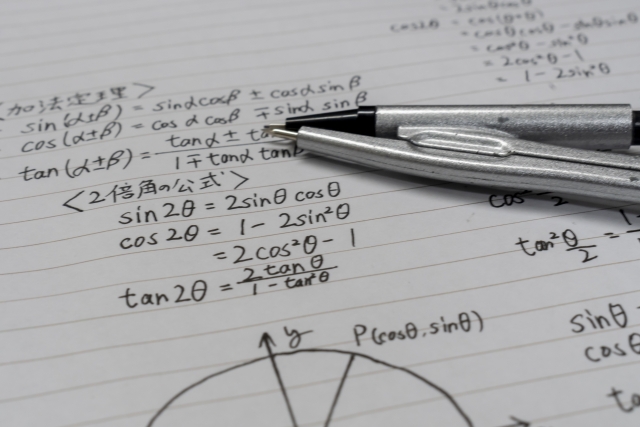 cos2θ = cos(θ+θ)
= cosθcosθ - sinθsinθ
= cos²θ - sin²θ
= 2cos²θ - 1
= 1 - 2sin²θ
<加法定理>
sin(α±β) = sinαcosβ ± cosαsinβ
cos(α±β) = cosαcosβ ∓ sinα sinβ
tan(α±β) = tanα ± / 1 ∓ tanα
<2倍角の公式>
sin2θ = 2sinθ cosθ
cos2θ = 1 - 2sin²θ
= 2cos²θ - 1
tan2θ = 2tanθ / 1 - tan²θ
tan²θ/2 =
y P(cosθ, sinθ)
sinθ
cosθ